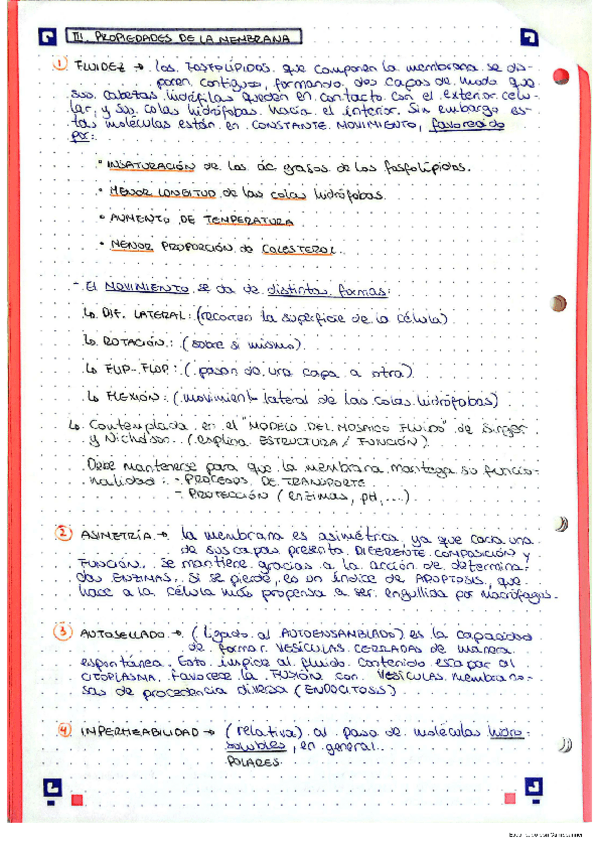 III. PROPIEDADES DE LA MEMBRANA
1 FLUIDEZ → Los FOSFOLÍPIDOS que componen la membrana se dis-
ponen contiguos, formando dos capas de modo que
sus cabezas hidrófilas queden en contacto con el exterior celu-
lar, y sus colas hidrófobas hacia el interior. Sin embargo es-
tas moléculas están en CONSTANTE MOVIMIENTO, favorecido
por:
• INSATURACIÓN de los ác. grasos de los fosfolípidos.
• MENOR LONGITUD de las colas hidrófobas.
• AUMENTO DE TEMPERATURA
• MENOR PROPORCIÓN de COLESTEROL.
- El MOVIMIENTO se da de distintas formas:
↳ DIF. LATERAL: (recorren la superficie de la célula)
↳ ROTACIÓN: (sobre sí mismo).
↳ FLIP-FLOP: (pasan de una capa a otra).
↳ FLEXIÓN: (movimient lateral de las colas hidrófobas)
↳ Contemplada en el "MODELO DEL MOSAICO FLUIDO" de Singer
y Nicholson. (explica ESTRUCTURA / FUNCIÓN).
Debe mantenerse para que la membrana mantega su funcio-
nalidad: - PROCESOS DE TRANSPORTE
- PROTECCIÓN (enzimas, pH, ...).
2 ASIMETRÍA → La membrana es asimétrica, ya que cada una
de sus capas presenta DIFERENTE COMPOSICIÓN y
FUNCIÓN. Se mantiene gracias a la acción de determina-
das ENZIMAS. Si se pierde, es un índice de APOPTOSIS, que
hace a la célula más propensa a ser engullida por macrófagos.
3 AUTOSELLADO → (ligado al AUTOENSAMBLADO) es la capacidad
de formar VESÍCULAS CERRADAS de manera
espontánea. Esto impide al fluido contenido escapar al
CITOPLASMA. Favorece la FUSIÓN con VESÍCULAS membrano-
sas de procedencia diversa (ENDOCITOSIS)
4 IMPERMEABILIDAD → (relativa) al paso de moléculas hidro-
solubles, en general.
POLARES